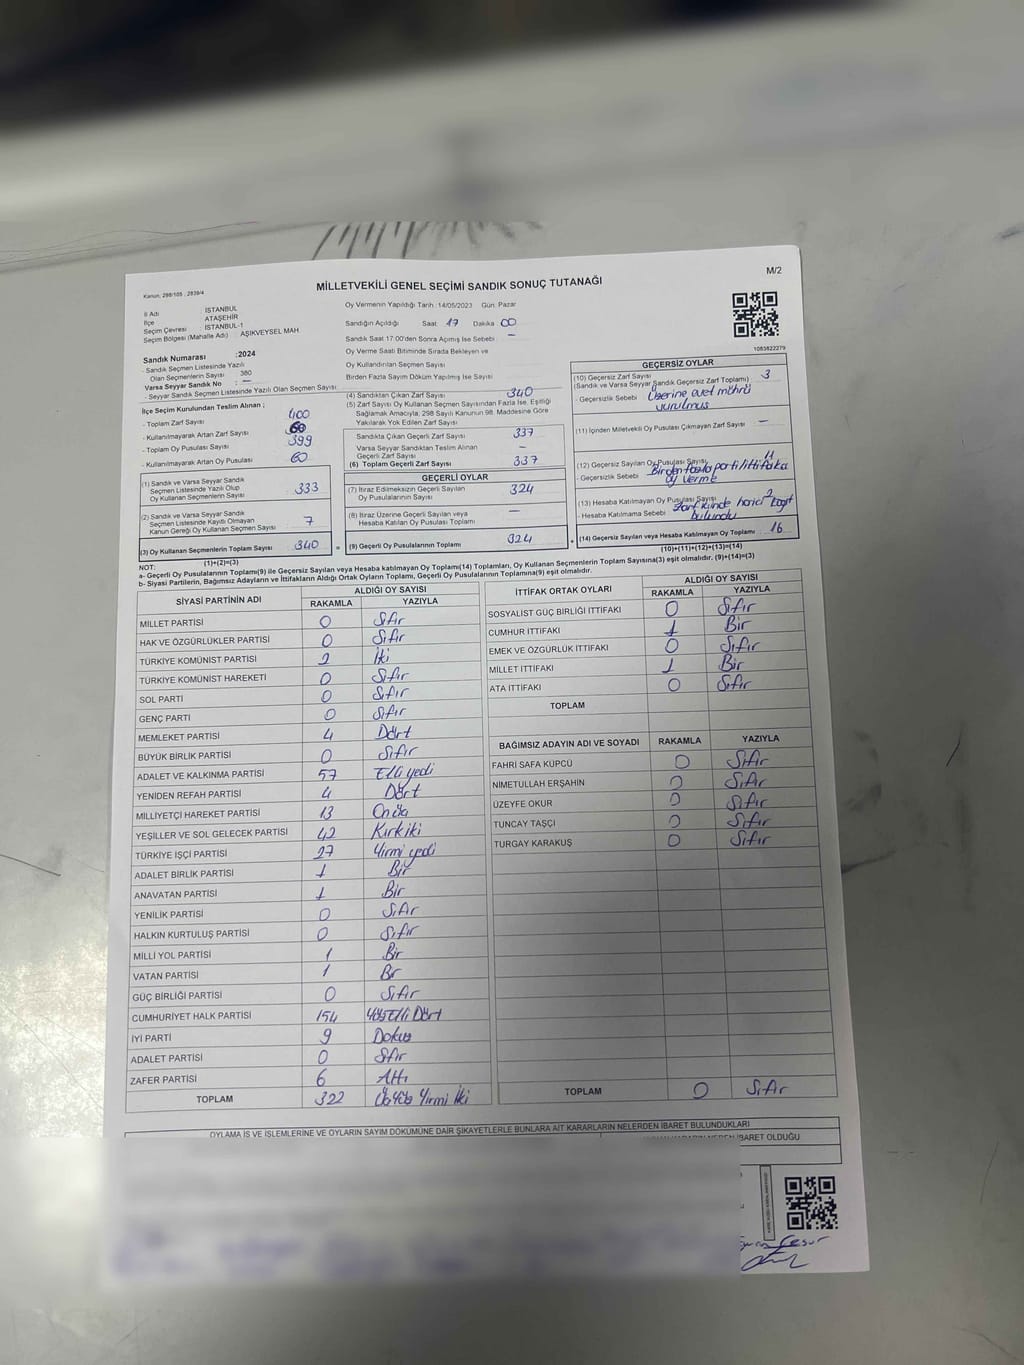 M/2
Kanun, 298/105 , 2839/4
MİLLETVEKİLİ GENEL SEÇİMİ SANDIK SONUÇ TUTANAĞI
İl Adı İSTANBUL
İlçe ATAŞEHİR
Seçim Çevresi İSTANBUL-1
Seçim Bölgesi (Mahalle Adı) AŞIKVEYSEL MAH.
Sandık Numarası :2024
- Sandık Seçmen Listesinde Yazılı
Olan Seçmenlerin Sayısı 380
Varsa Seyyar Sandık No : —
- Seyyar Sandık Seçmen Listesinde Yazılı Olan Seçmen Sayısı
Oy Vermenin Yapıldığı Tarih :14/05/2023 Gün: Pazar
Sandığın Açıldığı Saat 17 Dakika 00
Sandık Saat 17.00'den Sonra Açımış İse Sebebi —
Oy Verme Saati Bitiminde Sırada Bekleyen ve
Oy Kullandırılan Seçmen Sayısı
Birden Fazla Sayım Döküm Yapılmış İse Sayısı
1083822279
İlçe Seçim Kurulundan Teslim Alınan ;
- Toplam Zarf Sayısı 400
- Kullanılmayarak Artan Zarf Sayısı 60
- Toplam Oy Pusulası Sayısı 399
- Kullanılmayarak Artan Oy Pusulası 60
(1) Sandık ve Varsa Seyyar Sandık
Seçmen Listesinde Yazılı Olup
Oy Kullanan Seçmenlerin Sayısı 333
(2) Sandık ve Varsa Seyyar Sandık
Seçmen Listesinde Kayıtlı Olmayan
Kanun Gereği Oy Kullanan Seçmen Sayısı 7
(3) Oy Kullanan Seçmenlerin Toplam Sayısı 340
(1)+(2)=(3)
(4) Sandıktan Çıkan Zarf Sayısı 340
(5) Zarf Sayısı Oy Kullanan Seçmen Sayısından Fazla İse, Eşitliği
Sağlamak Amacıyla, 298 Sayılı Kanunun 98. Maddesine Göre
Yakılarak Yok Edilen Zarf Sayısı —
Sandıkta Çıkan Geçerli Zarf Sayısı 337
Varsa Seyyar Sandıktan Teslim Alınan
Geçerli Zarf Sayısı —
(6) Toplam Geçerli Zarf Sayısı 337
GEÇERLİ OYLAR
(7) İtiraz Edilmeksizin Geçerli Sayılan
Oy Pusulalarının Sayısı 324
(8) İtiraz Üzerine Geçerli Sayılan veya
Hesaba Katılan Oy Pusulası Toplamı —
= (9) Geçerli Oy Pusulalarının Toplamı 324
GEÇERSİZ OYLAR
(10) Geçersiz Zarf Sayısı 3
(Sandık ve Varsa Seyyar Sandık Geçersiz Zarf Toplamı)
- Geçersizlik Sebebi Üzerine evet mührü
vurulmuş
(11) İçinden Milletvekili Oy Pusulası Çıkmayan Zarf Sayısı —
(12) Geçersiz Sayılan Oy Pusulası Sayısı 11
- Geçersizlik Sebebi Birden fazla parti/ittifaka
oy verme
(13) Hesaba Katılmayan Oy Pusulası Sayısı 2
- Hesaba Katılmama Sebebi Zarf içinde harici kağıt
bulundu
+ (14) Geçersiz Sayılan veya Hesaba Katılmayan Oy Toplamı 16
(10)+(11)+(12)+(13)=(14)
NOT:
a- Geçerli Oy Pusulaları Toplamı(9) ile Geçersiz Sayılan veya Hesaba Katılmayan Oy Toplamı(14) Toplamları, Oy Kullanan Seçmenlerin Toplam Sayısına(3) eşit olmalıdır. (9)+(14)=(3)
b- Siyasi Partilerin, Bağımsız Adayların ve İttifakların Aldığı Ortak Oyların Toplamı, Geçerli Oy Pusulalarının Toplamına(9) eşit olmalıdır.
SİYASİ PARTİNİN ADI ALDIĞI OY SAYISI
RAKAMLA YAZIYLA
MİLLET PARTİSİ 0 Sıfır
HAK VE ÖZGÜRLÜKLER PARTİSİ 0 Sıfır
TÜRKİYE KOMÜNİST PARTİSİ 2 İki
TÜRKİYE KOMÜNİST HAREKETİ 0 Sıfır
SOL PARTİ 0 Sıfır
GENÇ PARTİ 0 Sıfır
MEMLEKET PARTİSİ 4 Dört
BÜYÜK BİRLİK PARTİSİ 0 Sıfır
ADALET VE KALKINMA PARTİSİ 57 Elli yedi
YENİDEN REFAH PARTİSİ 4 Dört
MİLLİYETÇİ HAREKET PARTİSİ 13 Onüç
YEŞİLLER VE SOL GELECEK PARTİSİ 42 Kırkiki
TÜRKİYE İŞÇİ PARTİSİ 27 Yirmi yedi
ADALET BİRLİK PARTİSİ 1 Bir
ANAVATAN PARTİSİ 1 Bir
YENİLİK PARTİSİ 0 Sıfır
HALKIN KURTULUŞ PARTİSİ 0 Sıfır
MİLLİ YOL PARTİSİ 1 Bir
VATAN PARTİSİ 1 Bir
GÜÇ BİRLİĞİ PARTİSİ 0 Sıfır
CUMHURİYET HALK PARTİSİ 154 Yüz Elli Dört
İYİ PARTİ 9 Dokuz
ADALET PARTİSİ 0 Sıfır
ZAFER PARTİSİ 6 Altı
TOPLAM 322 Üç Yüz Yirmi İki
İTTİFAK ORTAK OYLARI ALDIĞI OY SAYISI
RAKAMLA YAZIYLA
SOSYALİST GÜÇ BİRLİĞİ İTTİFAKI 0 Sıfır
CUMHUR İTTİFAKI 1 Bir
EMEK VE ÖZGÜRLÜK İTTİFAKI 0 Sıfır
MİLLET İTTİFAKI 1 Bir
ATA İTTİFAKI 0 Sıfır
TOPLAM
BAĞIMSIZ ADAYIN ADI VE SOYADI RAKAMLA YAZIYLA
FAHRİ SAFA KÜPCÜ 0 Sıfır
NİMETULLAH ERŞAHİN 0 Sıfır
ÜZEYFE OKUR 0 Sıfır
TUNCAY TAŞÇI 0 Sıfır
TURGAY KARAKUŞ 0 Sıfır
TOPLAM 0 Sıfır
OYLAMA İŞ VE İŞLEMLERİNE VE OYLARIN SAYIM DÖKÜMÜNE DAİR ŞİKAYETLERLE BUNLARA AİT KARARLARIN NELERDEN İBARET BULUNDUKLARI
İBARET OLDUĞU